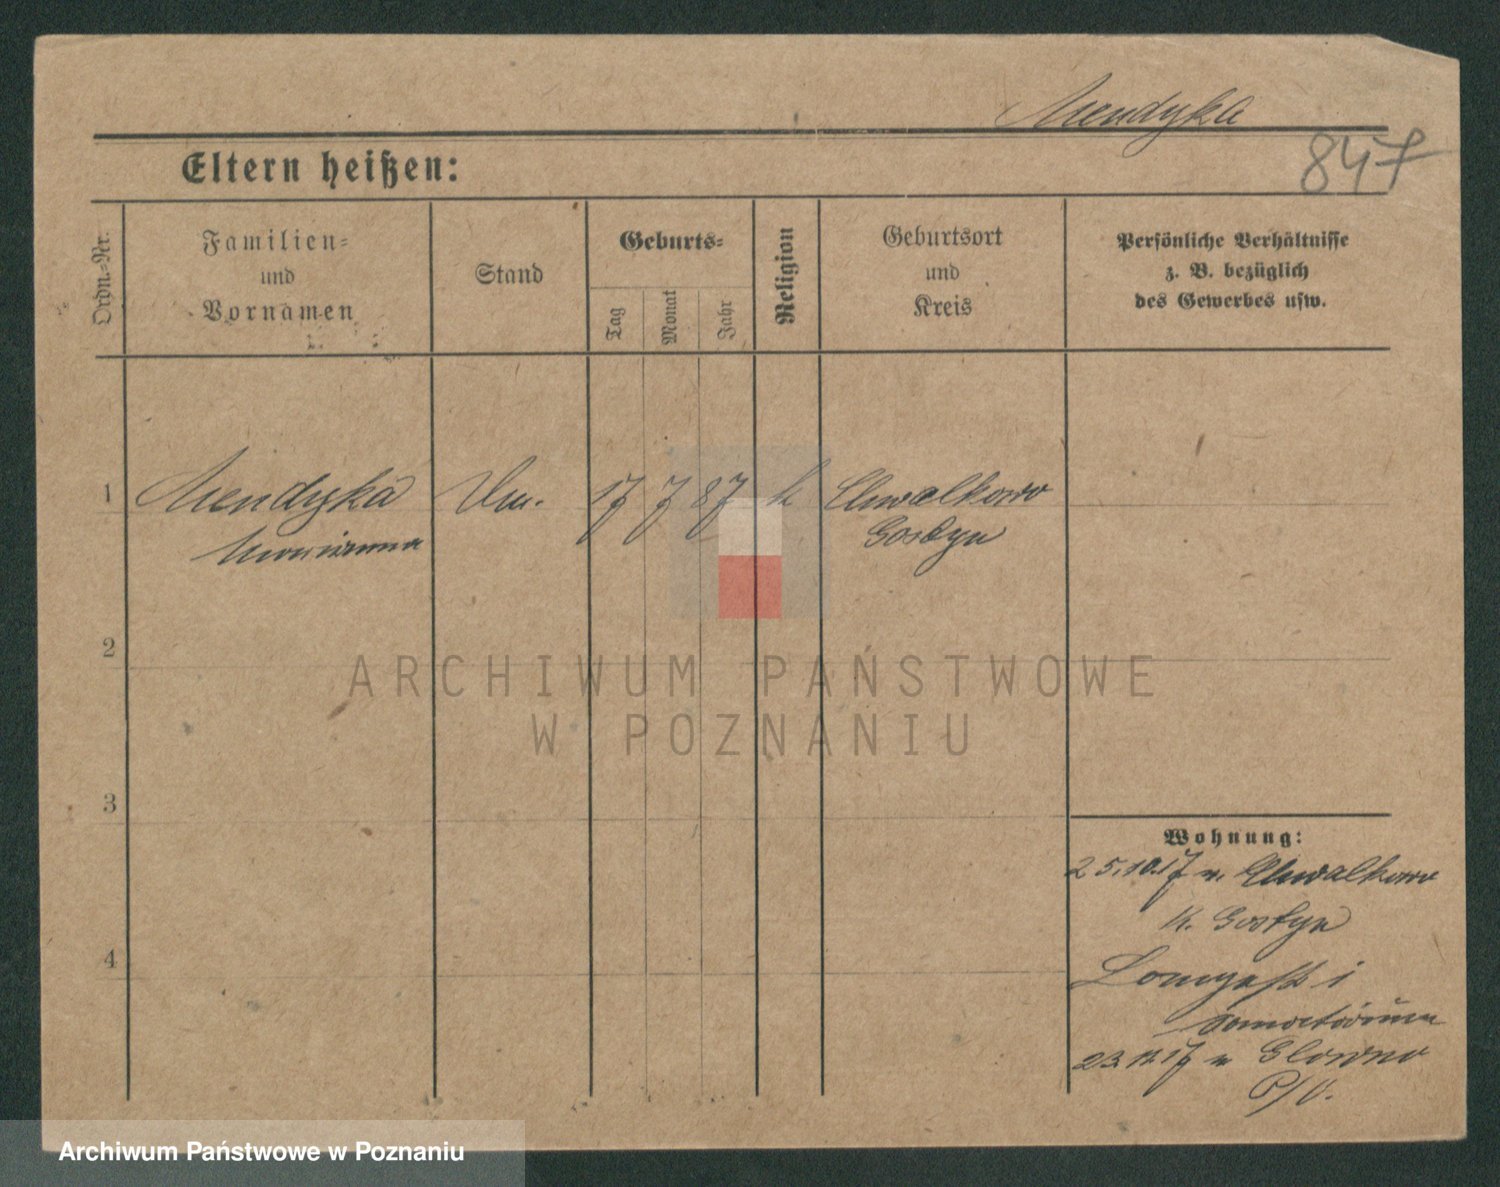 Mendyka
847
Eltern heißen:
Ordn.-Nr.
Familien-
und
Vornamen
Stand
Geburts-
Tag
Monat
Jahr
Religion
Geburtsort
und
Kreis
Persönliche Verhältnisse
z. B. bezüglich
des Gewerbes usw.
1 Mendyka 17 7 87 k Chwalkowo
Marianna Gostyn
2
3
4
Wohnung:
25.10.17 v. Chwalkowo
K. Gostyn
Sanatorium
23.11.17 n Glowno
P/O.
ARCHIWUM PAŃSTWOWE
W POZNANIU
Archiwum Państwowe w Poznaniu